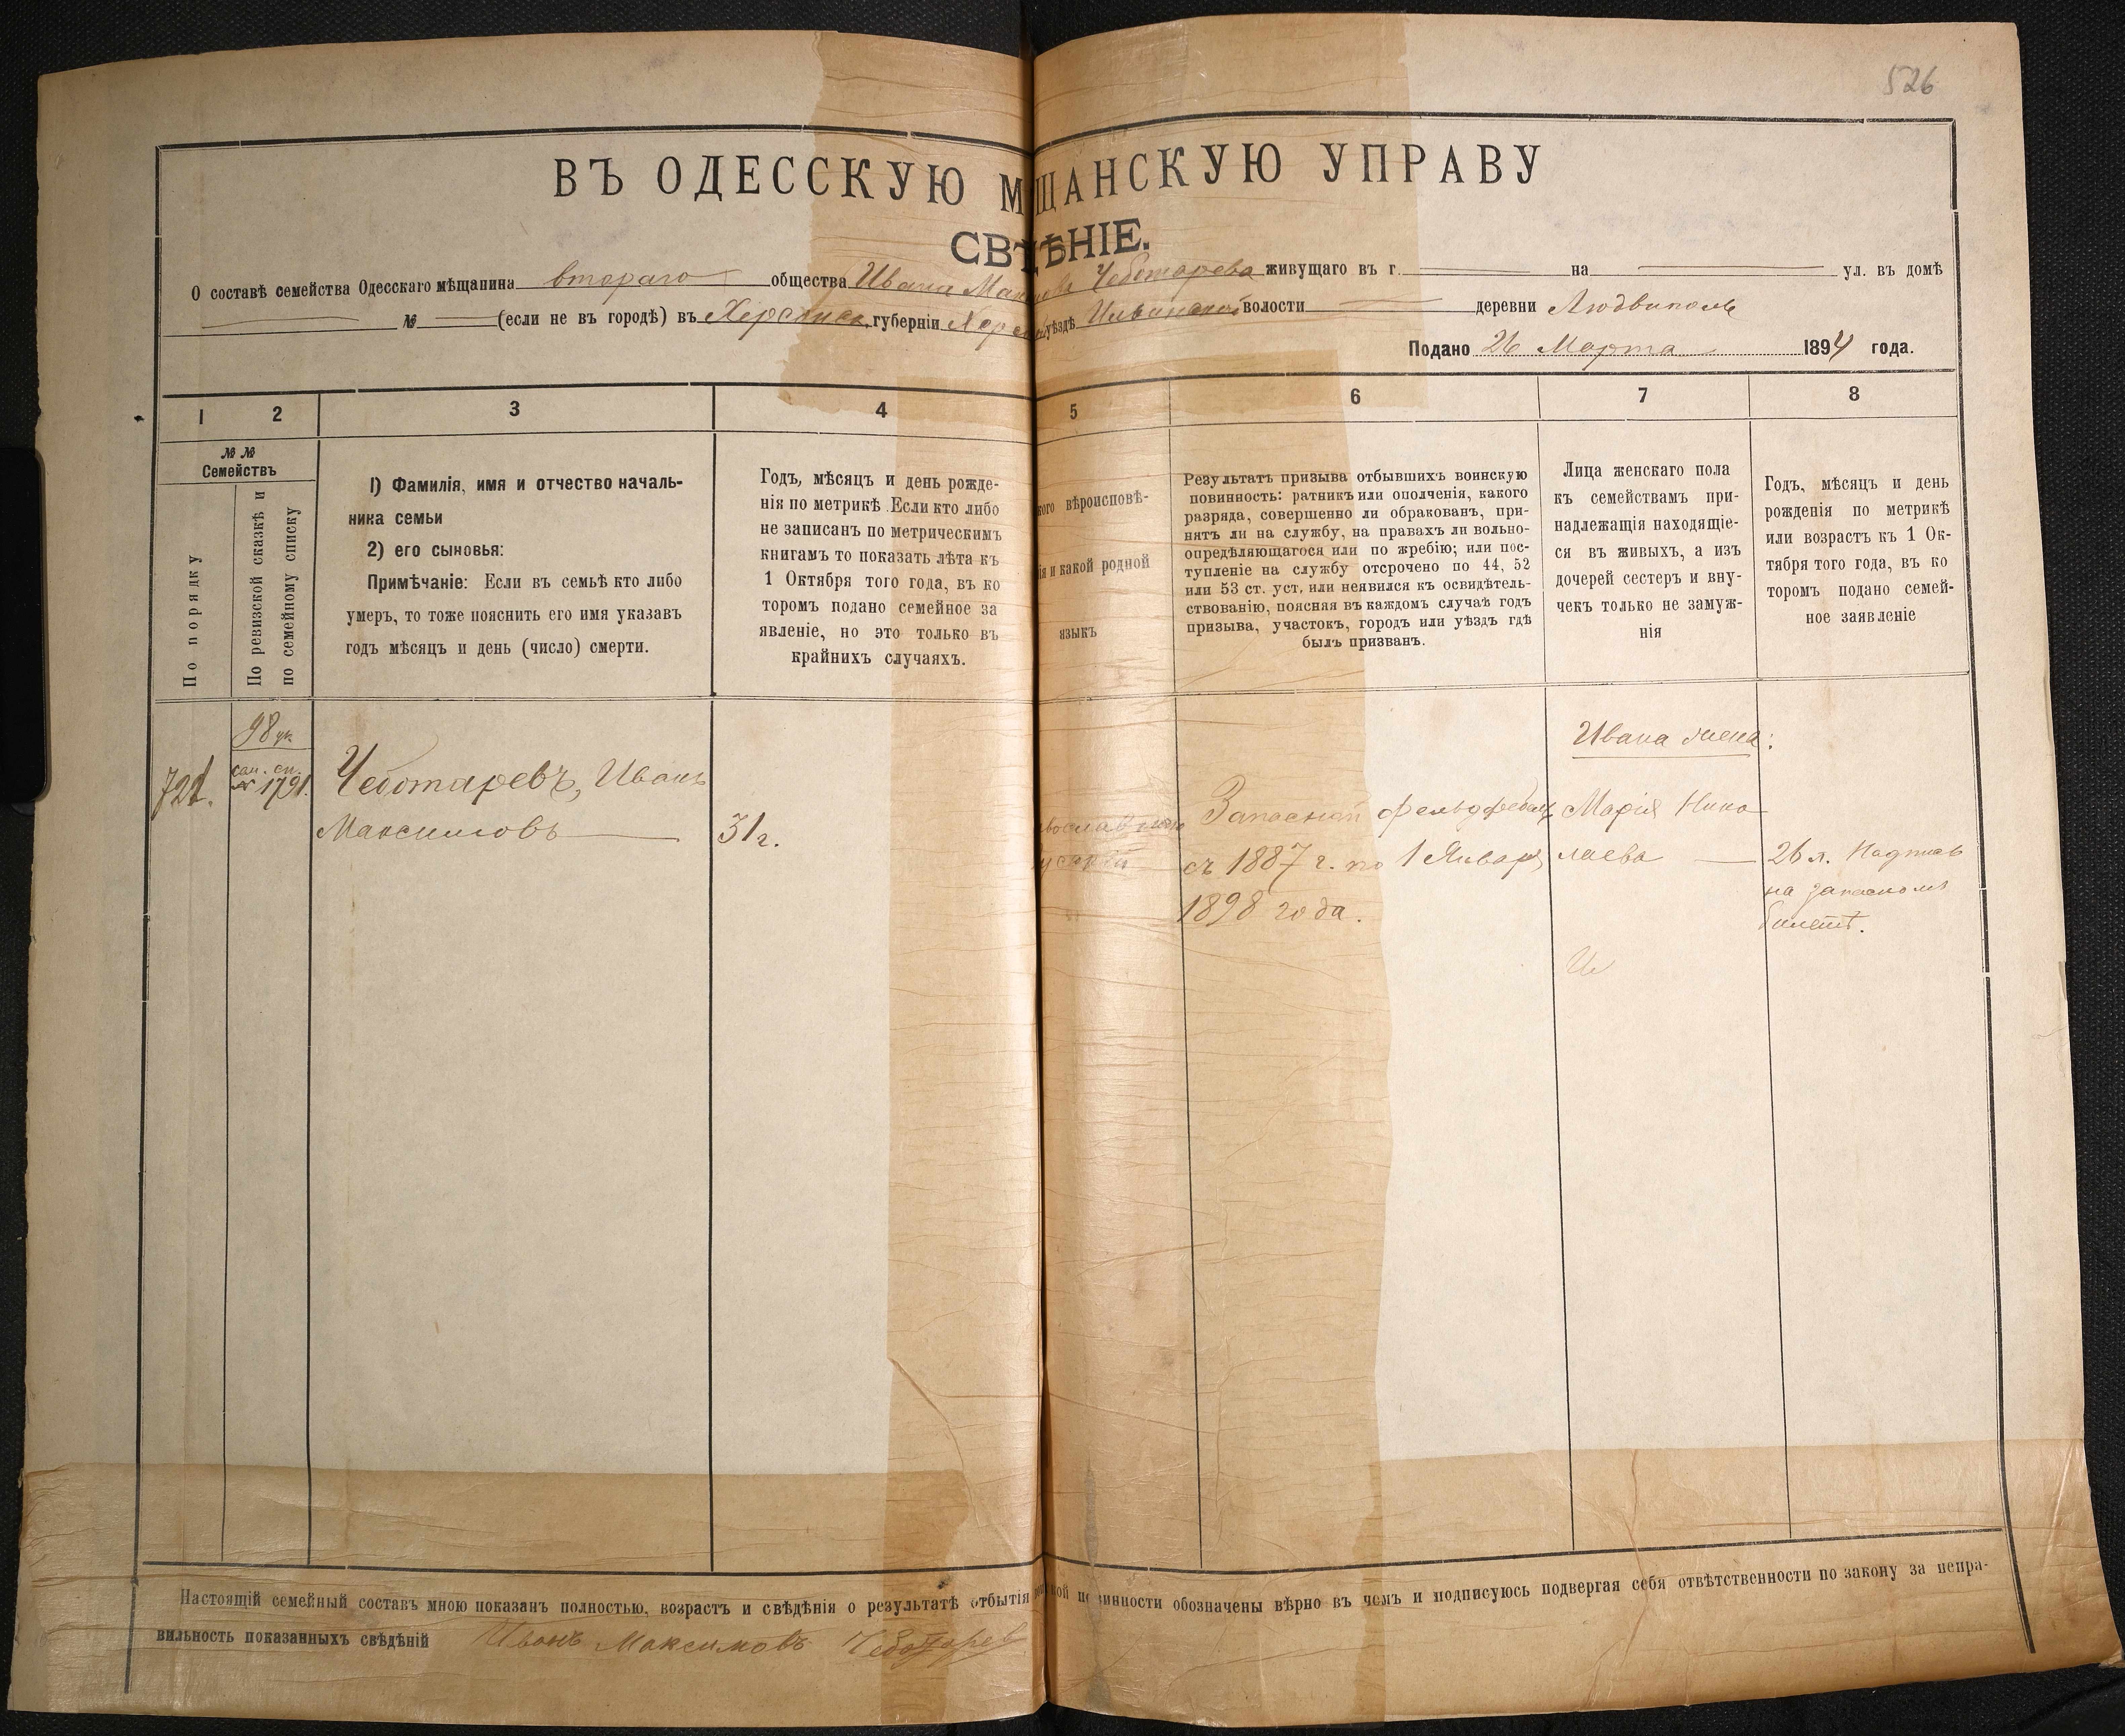 526
ВЪ ОДЕССКУЮ М ЩАНСКУЮ УПРАВУ
СВ ѢНІЕ.
О составѣ семейства Одесскаго мѣщанина втораго общества Ивана Чеботарева живущаго въ г. на ул. въ домѣ
№ (если не въ городѣ) въ Херсонск. губерніи Херс уѣздѣ волости деревни Людвиполь
Подано 26 Марта 1894 года.
1 2 3 4 5 6 7 8
№ №
Семействъ
По порядку
По ревизской сказкѣ и
по семейному списку
1) Фамилія, имя и отчество началь-
ника семьи
2) его сыновья:
Примѣчаніе: Если въ семьѣ кто либо
умеръ, то тоже пояснить его имя указавъ
годъ мѣсяцъ и день (число) смерти.
Годъ, мѣсяцъ и день рожде-
нія по метрикѣ. Если кто либо
не записанъ по метрическимъ
книгамъ то показать лѣта къ
1 Октября того года, въ ко
торомъ подано семейное за
явленіе, но это только въ
крайнихъ случаяхъ.
кого вѣроисповѣ-
ія и какой родной
языкъ
Результатъ призыва отбывшихъ воинскую
повинность: ратникъ или ополченія, какого
разряда, совершенно ли обракованъ, при-
нятъ ли на службу, на правахъ ли вольно-
опредѣляющагося или по жребію; или пос-
тупленіе на службу отсрочено по 44, 52
или 53 ст. уст, или неявился къ освидѣтель-
ствованію, поясняя въ каждомъ случаѣ годъ
призыва, участокъ, городъ или уѣздъ гдѣ
былъ призванъ.
Лица женскаго пола
къ семействамъ при-
надлежащія находящіе-
ся въ живыхъ, а изъ
дочерей сестеръ и вну-
чекъ только не замуж-
нія
Годъ, мѣсяцъ и день
рожденія по метрикѣ
или возрастъ къ 1 Ок-
тября того года, въ ко
торомъ подано семей-
ное заявленіе
98
№ 1791.
721.
Чеботаревъ, Иванъ
Максимовъ
31 г.
вославнаго
усскій
Запасный фельдфебель
съ 1887 г. по 1 Января
1898 года.
Ивана жена:
Марія Нико
лаева
26 л.
на запасномъ
билетѣ.
Настоящій семейный составъ мною показанъ полностью, возрастъ и свѣдѣнія о результатѣ отбытія ной по инности обозначены вѣрно въ чемъ и подписуюсь подвергая себя отвѣтственности по закону за непра-
вильность показанныхъ свѣдѣній Иванъ Максимовъ Чеботарев